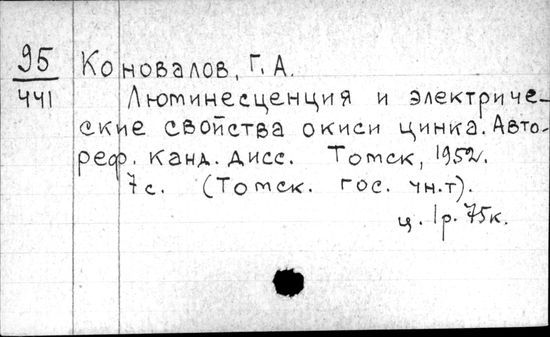 95 Коновалов, Г.А.
441 Люминесценция и электриче-
ские свойства окиси цинка. Авто-
реф. канд. дисс. Томск, 1952.
7с. (Томск. гос. ун.т).
ц. 1р. 75к.